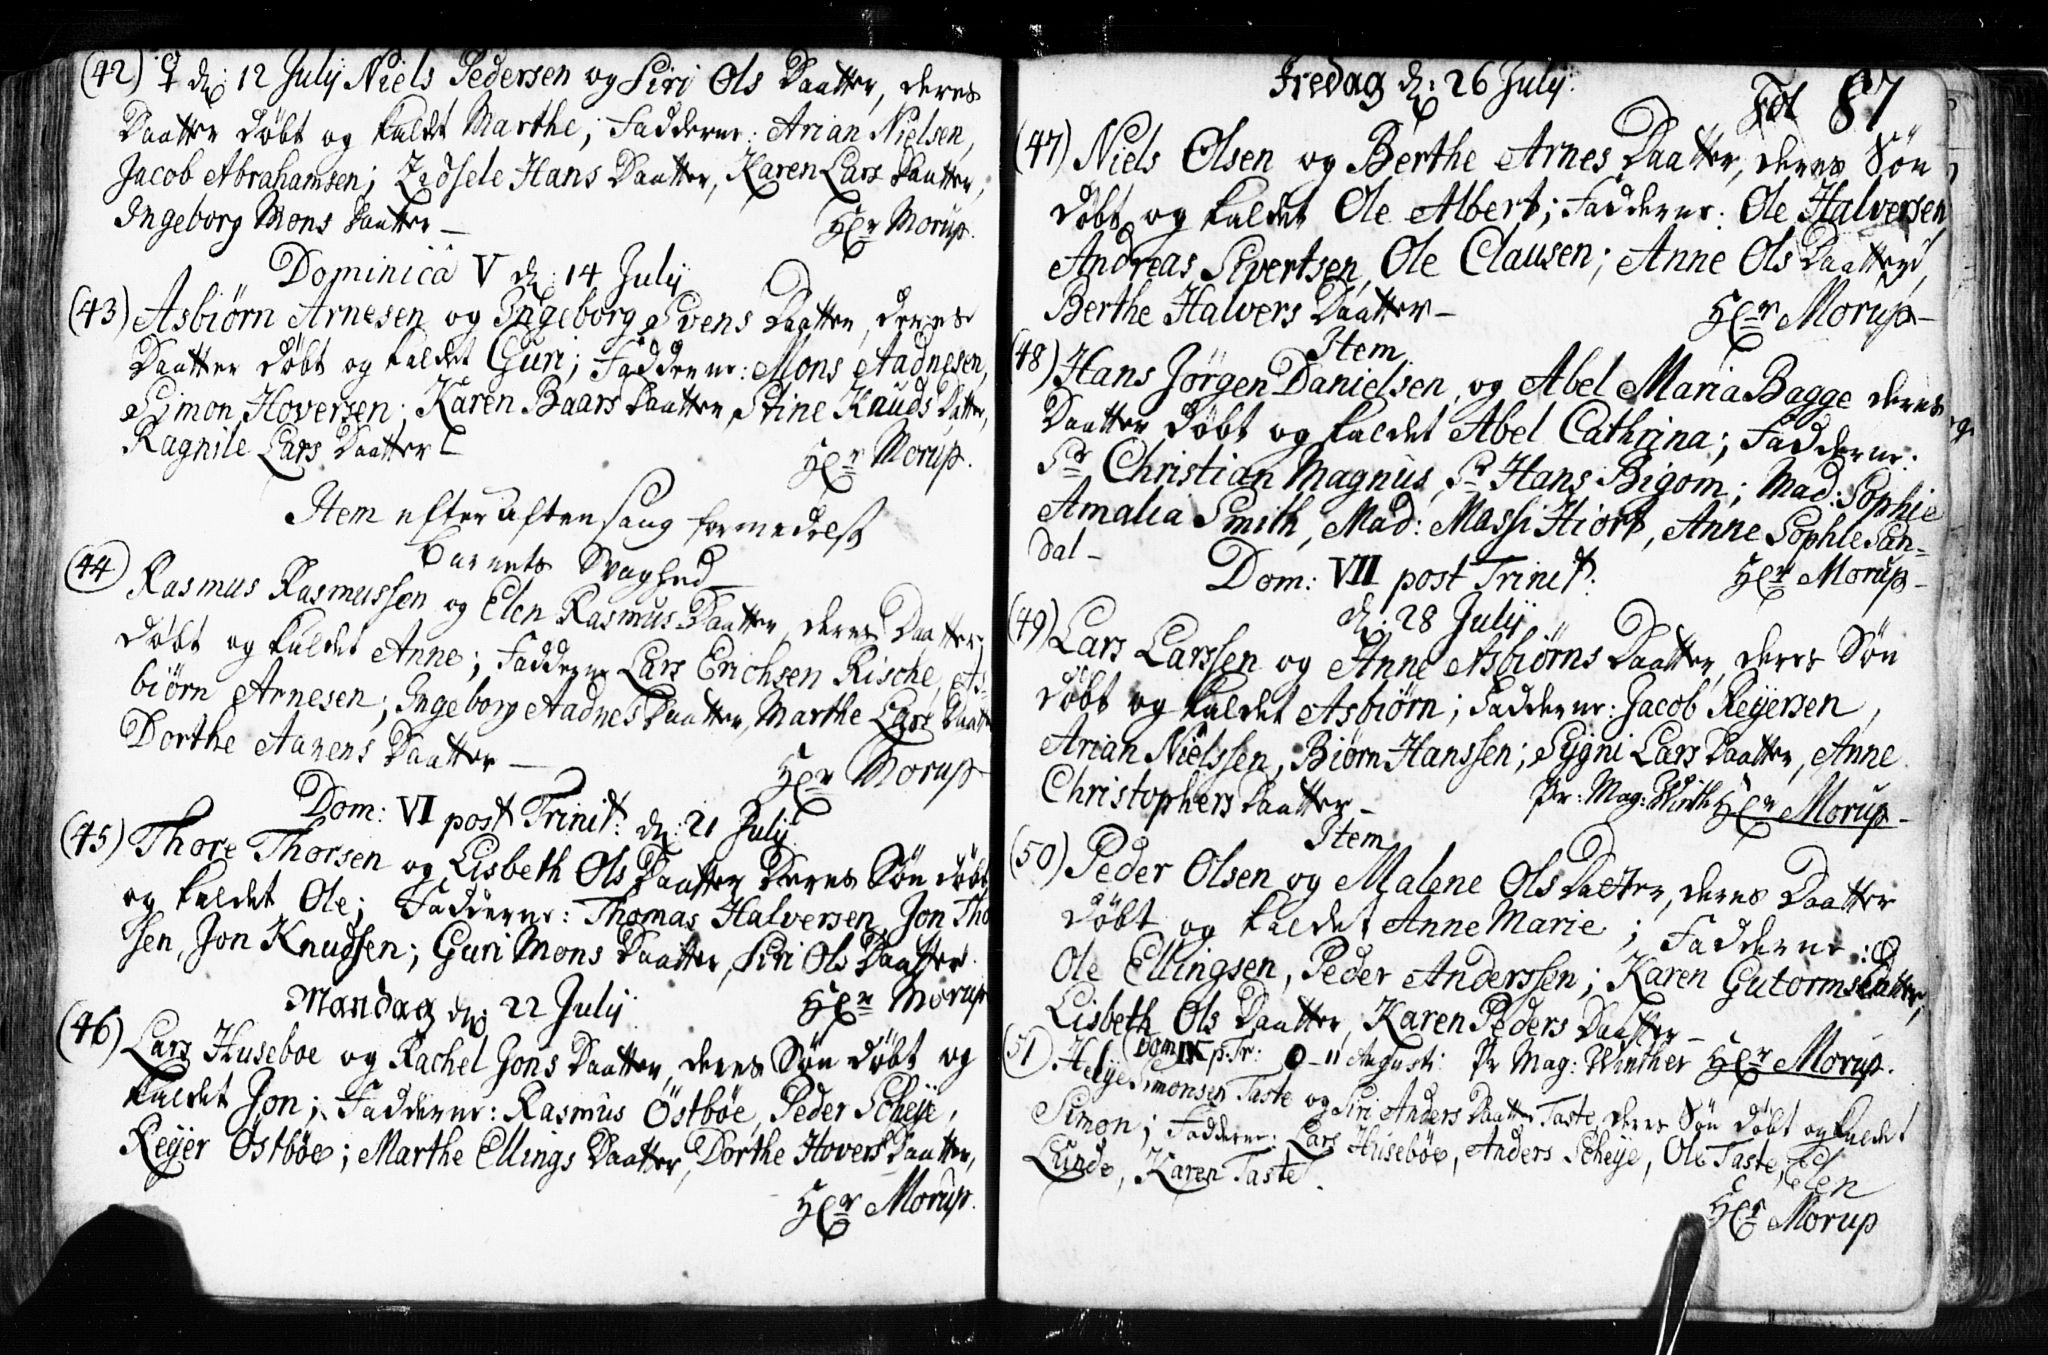 (42) ♀ d: 12 Julij Niels Pedersen og Siri Ols Daatter, deres
Daatter døbt og kaldet Marthe; Fadderne: Arian Nielsen,
Jacob Abrahamsen; Zidsele Hans Daatter, Karen Lars Daatter,
Ingeborg Mons Daatter —
Hr Morup.
Dominica V d: 14 Julij
(43) Asbiørn Arnesen og Ingeborg Svens Daatter, deres
Daatter døbt og kaldet Guri; Fadderne: Mons Aadnesen,
Simon Hoversen; Karen Baars Daatter, Stine Knuds Datter,
Ragnile Lars Daatter
Hr Morup.
Item efter aftensang formedelst
Barnets Svaghed —
(44) Rasmus Rasmussen og Elen Rasmus Daatter, deres Daatter
døbt og kaldet Anne; Fadderne Lars Erichsen Rische, As-
biørn Arnesen; Ingeborg Aadnes Daatter, Marthe Lars Daatter
Dorthe Aarens Daatter —
Hr Morup
Dom: VI post Trinit: d: 21 Julij
(45) Thore Thorsen og Lisbeth Ols Daatter deres Søn døbt
og kaldet Ole; Fadderne: Thomas Halversen, Jon Tho
sen, Jon Knudsen; Guri Mons Daatter, Siri Ols Daatter.
Hr Morup
Mandag d: 22 Julij
(46) Lars Huseboe og Rachel Jons Daatter, deres Søn døbt og
kaldet Jon; Fadderne: Rasmus Østbøe, Peder Scheije,
Reijer Østbøe; Marthe Ellings Daatter, Dorthe Hovers Daatter,
Hr Morup.
Fredag d: 26 Julij.
Fol 87
(47) Niels Olsen og Berthe Arnes Daatter, deres Søn
døbt og kaldet Ole Albert; Fadderne: Ole Halversen
Andreas Sivertsen, Ole Clausen; Anne Ols Daatter,
Berthe Halvers Daatter —
Hr Morup —
Item
(48) Hans Jørgen Danielsen, og Abel Maria Bagge deres
Daatter døbt og kaldet Abel Cathrina; Fadderne:
Sr Christian Magnus, Sr Hans Bigom; Mad: Sophie
Amalia Smith, Mad: Massi Hiort, Anne Sophie San-
dal —
Hr Morup —
Dom: VII post Trinit:
d: 28 Julij
(49) Lars Larssen og Anne Asbiørns Daatter, deres Søn
døbt og kaldet Asbiørn; Fadderne: Jacob Reijersen,
Arian Nielssen, Biørn Hanssen; Sygni Lars Daatter, Anne
Christophers Daatter —
Pr: Mag: Winth Hr Morup —
Item
(50) Peder Olsen og Malene Ols Datter, deres Daatter
døbt og kaldet Anne Marie; Fadderne:
Ole Ellingsen, Peder Anderssen; Karen Gutorms Datter,
Lisbeth Ols Daatter, Karen Peders Daatter —
Pr Mag: Winther Hr Morup.
Dom IX p. Tr: d 11 Augusti
(51) Helje Simonsen Taste og Siri Anders Daatter Taste, deres Søn døbt og kaldet
Simon; Fadderne: Lars Husebøe, Anders Scheije, Ole Taste, Elen
Lunde, Karen Taste.
Hr Morup